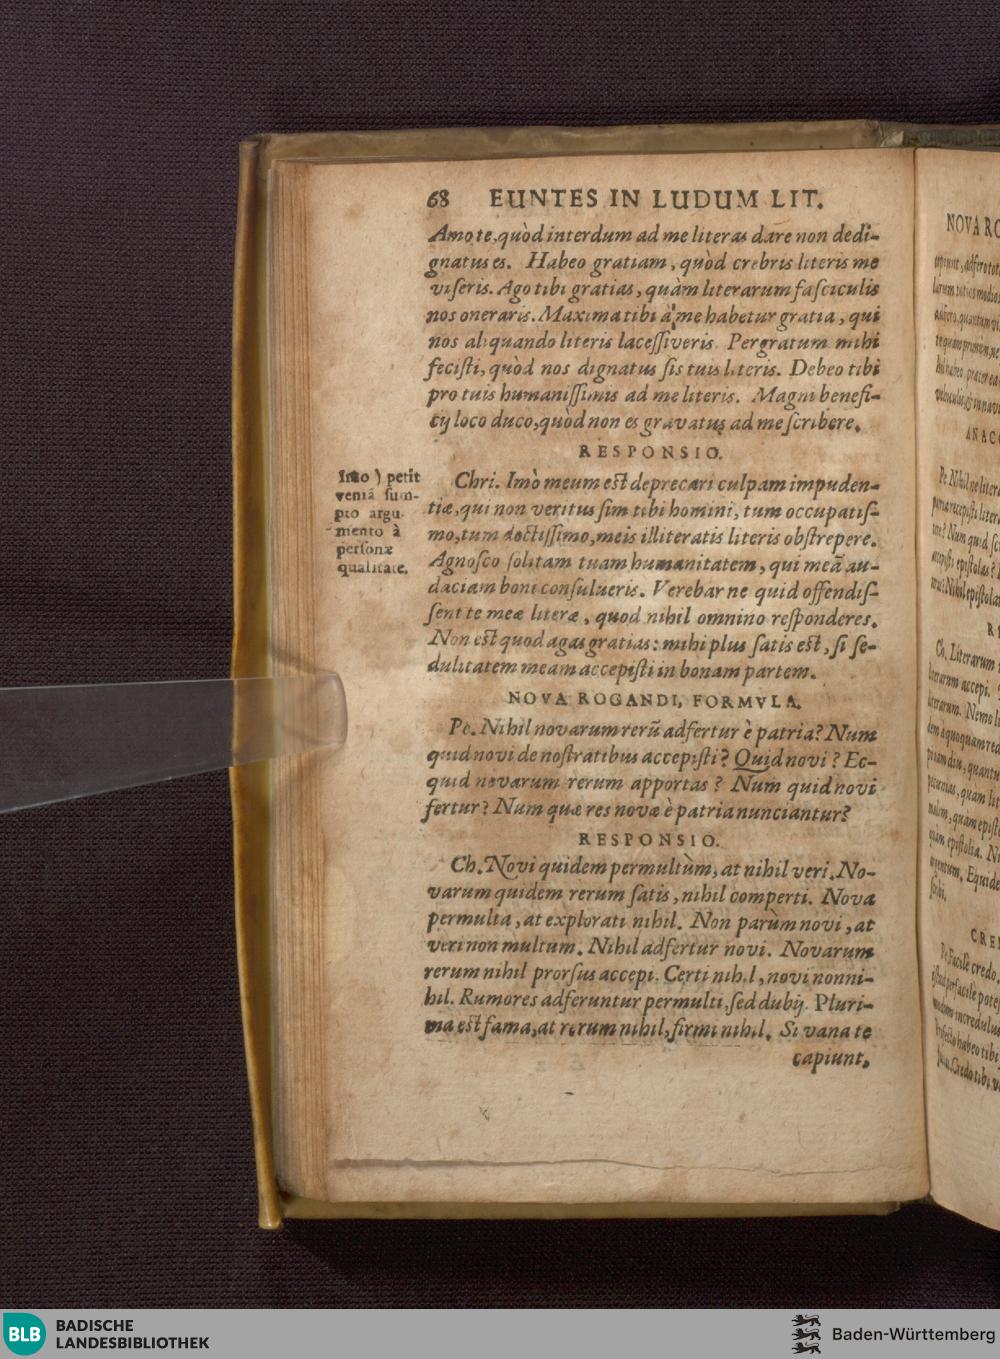 68 EUNTES IN LUDUM LIT.
Amo te, quòd interdum ad me literas dare non dedi-
gnatus es. Habeo gratiam, quòd crebris literis me
viseris. Ago tibi gratias, quàm literarum fasciculis
nos oneraris. Maxima tibi à me habetur gratia, qui
nos aliquando literis lacessiveris. Pergratum mihi
fecisti, quòd nos dignatus sis tuis literis. Debeo tibi
pro tuis humanissimis ad me literis. Magni benefi-
cij loco duco, quòd non es gravatus ad me scribere.
RESPONSIO.
Imo ) petit
veniã sum-
pto argu-
mento à
personæ
qualitate.
Chri. Imò meum est deprecari culpam impuden-
tiæ, qui non veritus sim tibi homini, tum occupatis-
mo, tum doctissimo, meis illiteratis literis obstrepere.
Agnosco solitam tuam humanitatem, qui meã au-
daciam boni consulueris. Verebar ne quid offendis-
sent te meæ literæ, quod nihil omnino responderes.
Non est quod agas gratias: mihi plus satis est, si se-
dulitatem meam accepisti in bonam partem.
NOVA ROGANDI, FORMVLA.
Pe. Nihil novarum rerũ adfertur è patria? Num
quid novi de nostratibus accepisti? Quid novi? Ec-
quid novarum rerum apportas? Num quid novi
fertur? Num quæ res novæ è patria nunciantur?
RESPONSIO.
Ch. Novi quidem permultùm, at nihil veri. No-
varum quidem rerum satis, nihil comperti. Nova
permulta, at explorati nihil. Non parùm novi, at
veri non multum. Nihil adfertur novi. Novarum
rerum nihil prorsus accepi. Certi nihil, novi nonni-
hil. Rumores adferuntur permulti, sed dubij. Pluri-
ma est fama, at rerum nihil, firmi nihil. Si vana te
capiunt,
NOVA RO
ANAC
CRE
BLB BADISCHE
LANDESBIBLIOTHEK
Baden-Württemberg